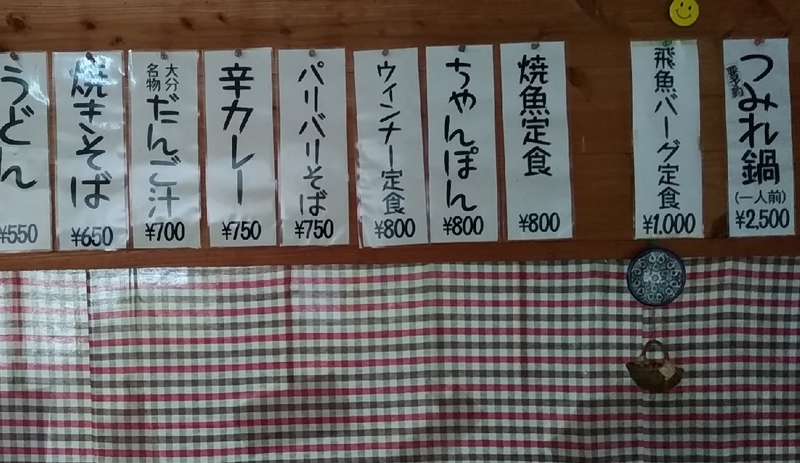 つみれ鍋
要予約
(一人前)
¥2,500
飛魚バーグ定食
¥1,000
焼魚定食
¥800
ちゃんぽん
¥800
ウィンナー定食
¥800
パリパリそば
¥750
辛カレー
¥750
大分
名物
だんご汁
¥700
焼きそば
¥650
うどん
¥550